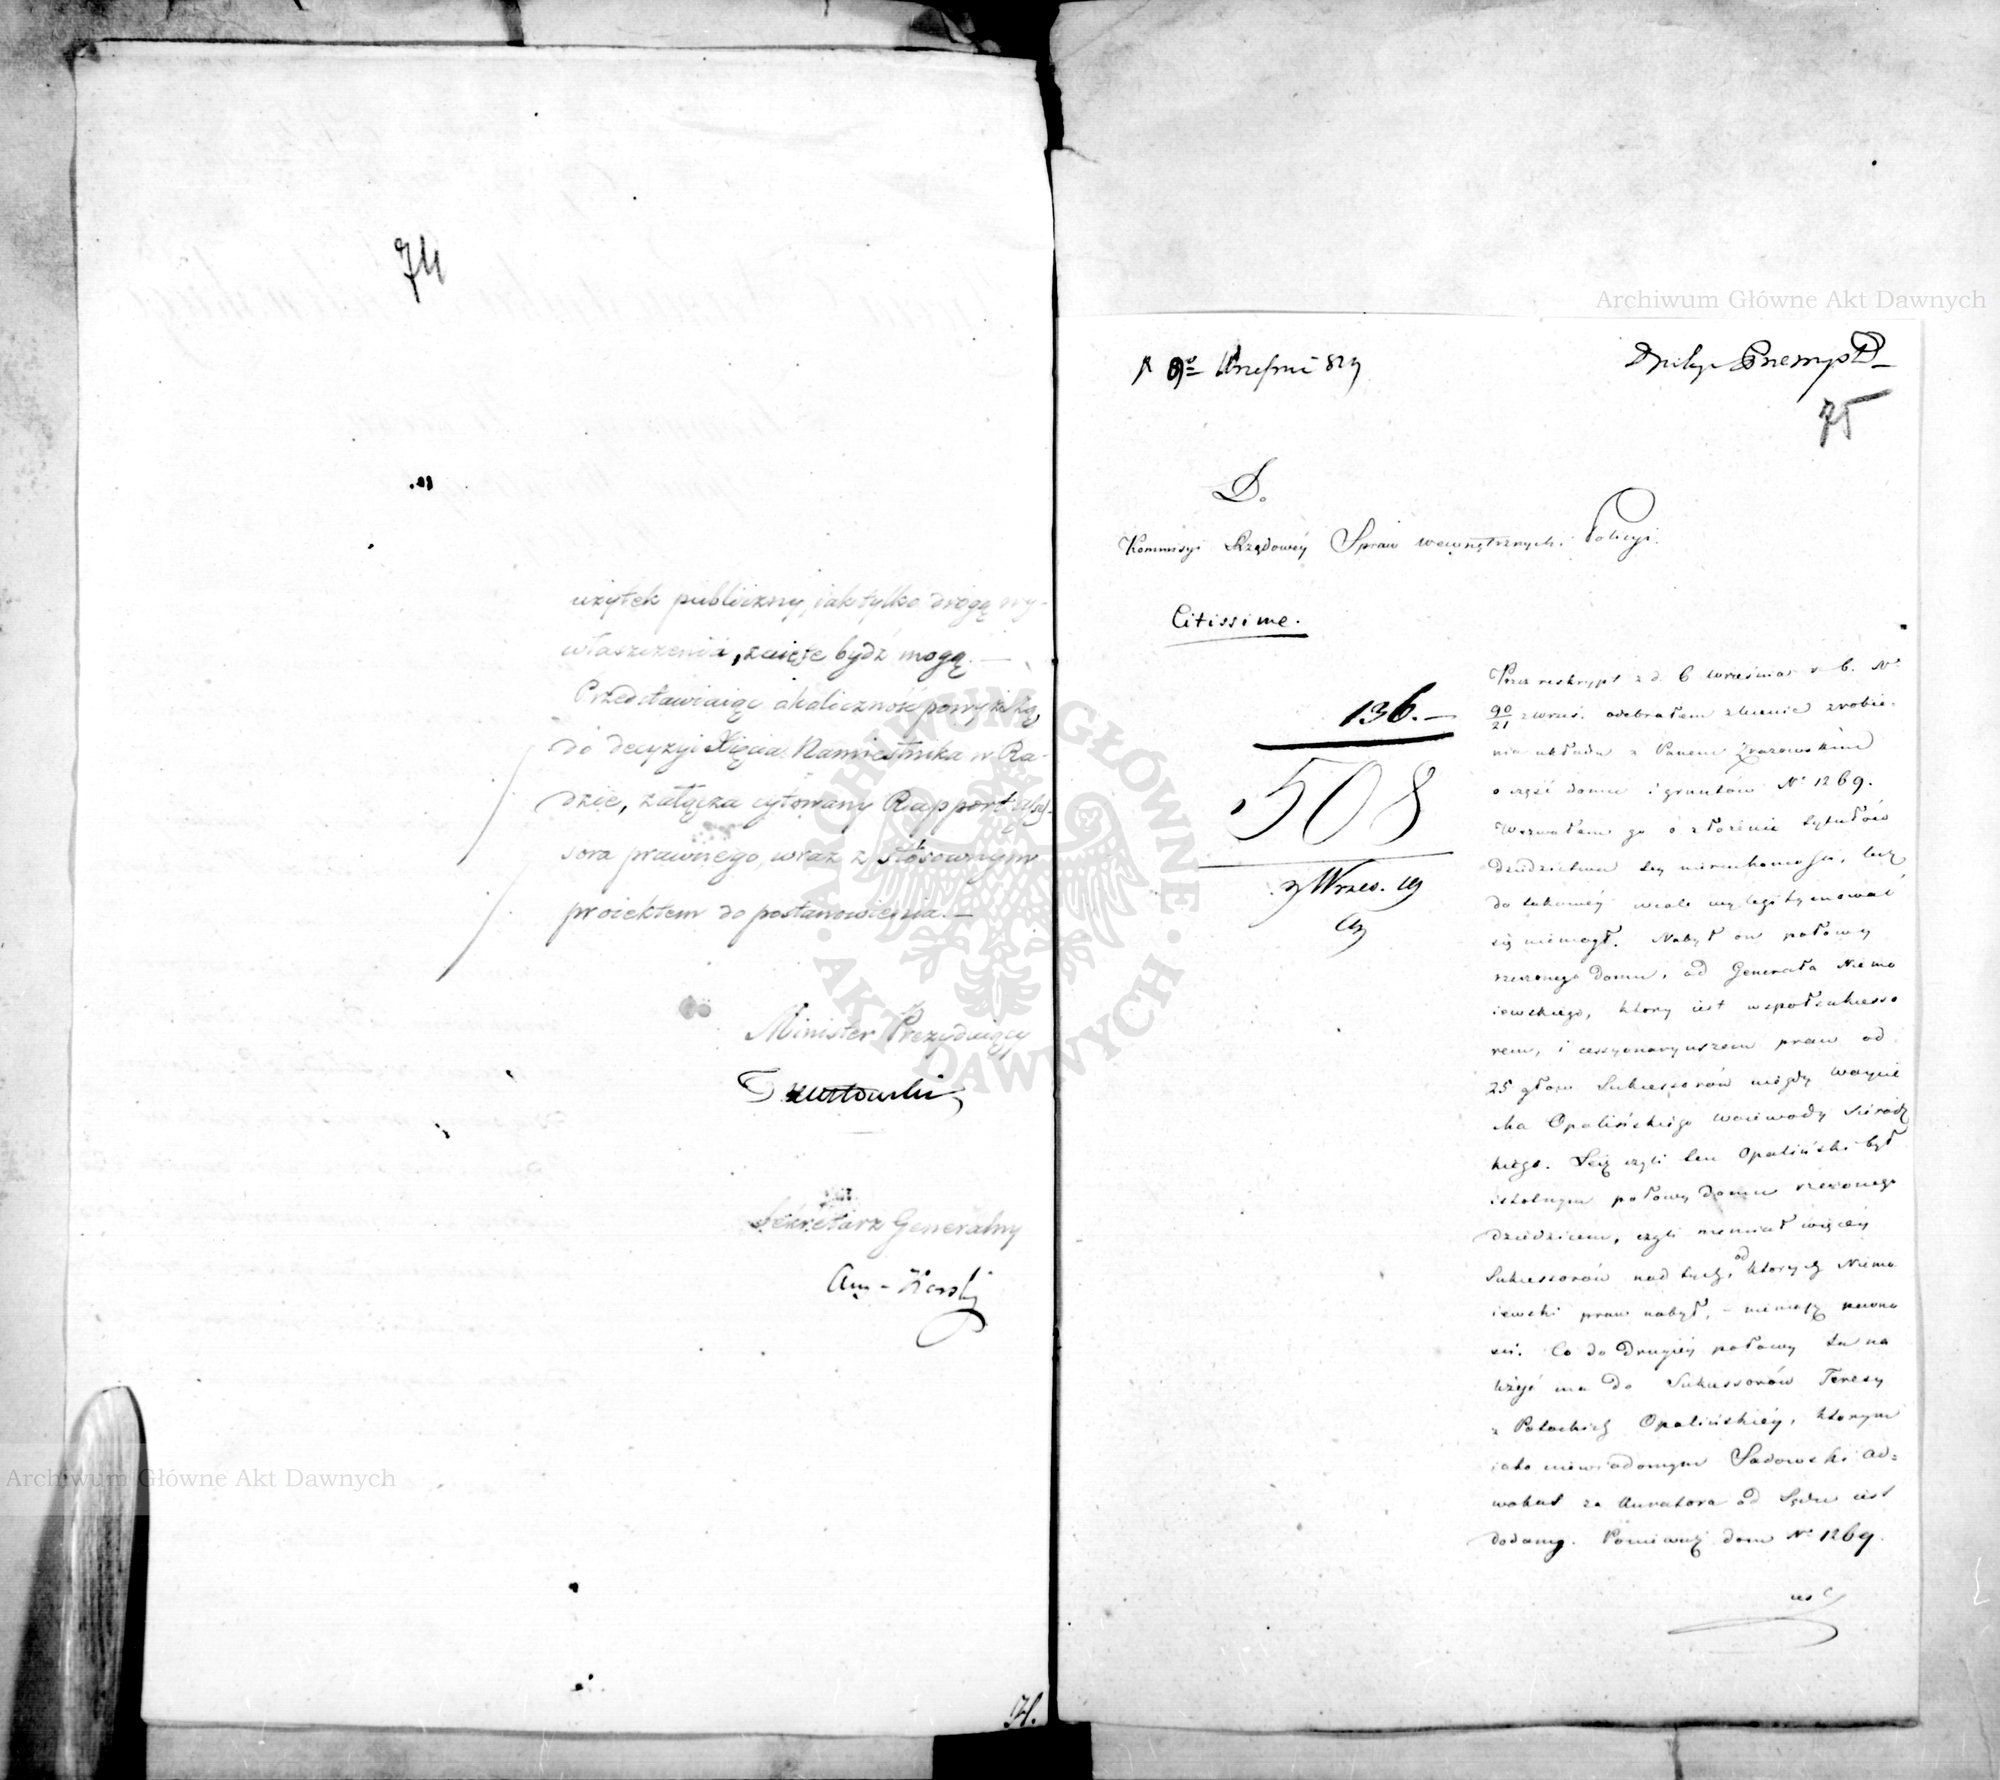 74
użytek publiczny, iak tylko drogą wy-
właszczenia, zaięte bydź mogą. —
Przedstawiaiąc okoliczność powyższą,
do decyzyi Xięcia Namiestnika w Ra-
dzie, załącza cytowany Rapport Asses-
sora prawnego, wraz z stosownym
proiektem do postanowienia. —
Minister Prezyduiący
Sekretarz Generalny
Archiwum Główne Akt Dawnych
ARCHIWUM GŁÓWNE AKT DAWNYCH
Archiwum Główne Akt Dawnych
75
D.
Kommisyi Rządowéy Spraw Wewnętrznych i Policyi.
Citissime.
136. —
508
9 Wrzes.
Przez reskrypt z d. 6 Września r. b. N°
90/21 odebrałem zlecenie zrobie-
nia układu z Panem
o część domu i gruntów N° 1269.
Wezwałem go o złożenie tytułów
dziedzictwa tey nieruchomości, lecz
do takowéy wcale wylegitymować
się niemógł. Nabył on połowę
rzeczonego domu, od Generała Niemo
iewskiego, który iest współsukcesso
rem, i cessyonaryuszem praw od
25 głów Sukcessorów niegdy Woycie
cha Opalińskiego Woiewody Sieradz
kiego. Lecz czyli ten Opaliński był
istotnym połowy domu rzeczonego
dziedzicem, czyli niemiał więcéy
Sukcessorów nad tych, od których Niemo
iewski praw nabył, – niemasz pewno
ści. Co do drugiéy połowy ta na
leżéć ma do Sukcessorów Teresy
z Potockich Opalińskiéy, którym
iako niewiadomym Sadowski Ad=
wokat za Kuratora od Sądu iest
dodany. Ponieważ dom N° 1269.